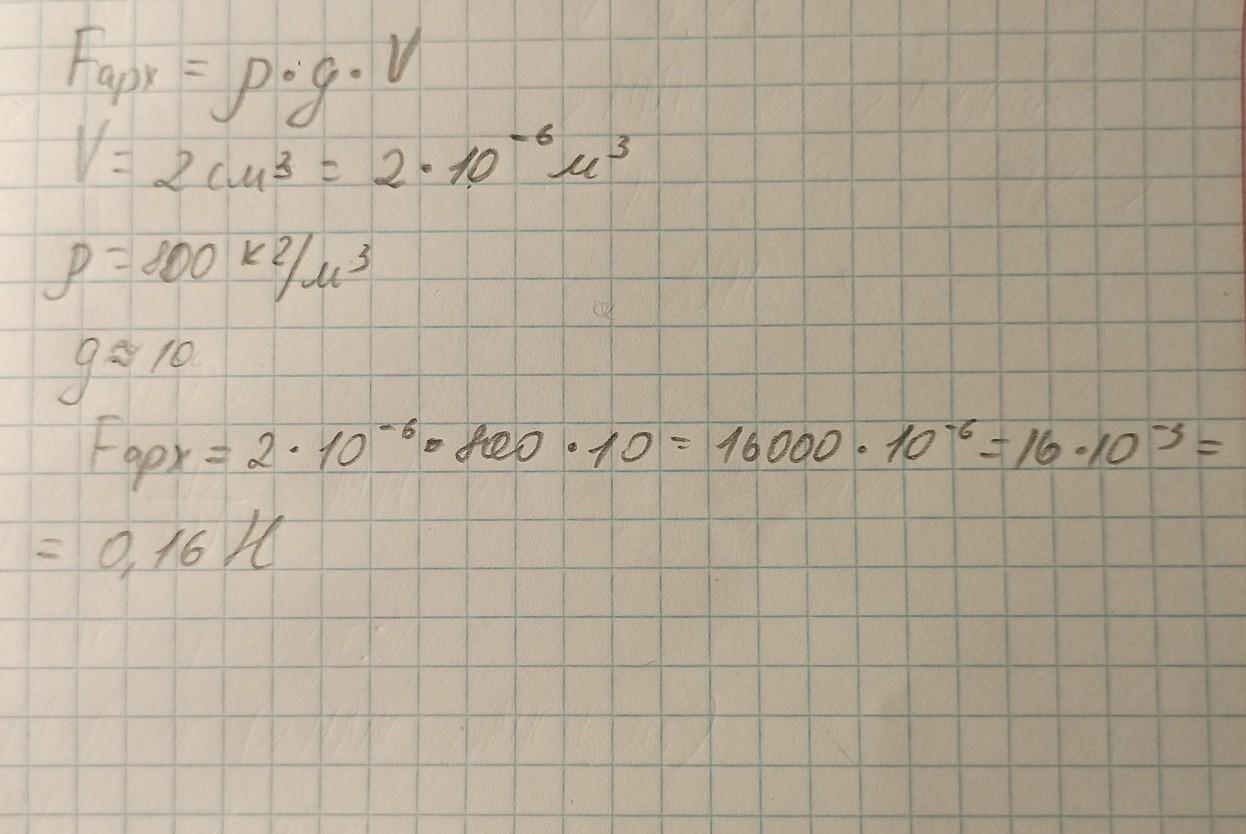 Fарх = ρ·g·V
V = 2 см³ = 2·10⁻⁶ м³
ρ = 800 кг/м³
g ≈ 10
Fарх = 2·10⁻⁶·800·10 = 16000·10⁻⁶ = 16·10⁻³ =
= 0,16 Н